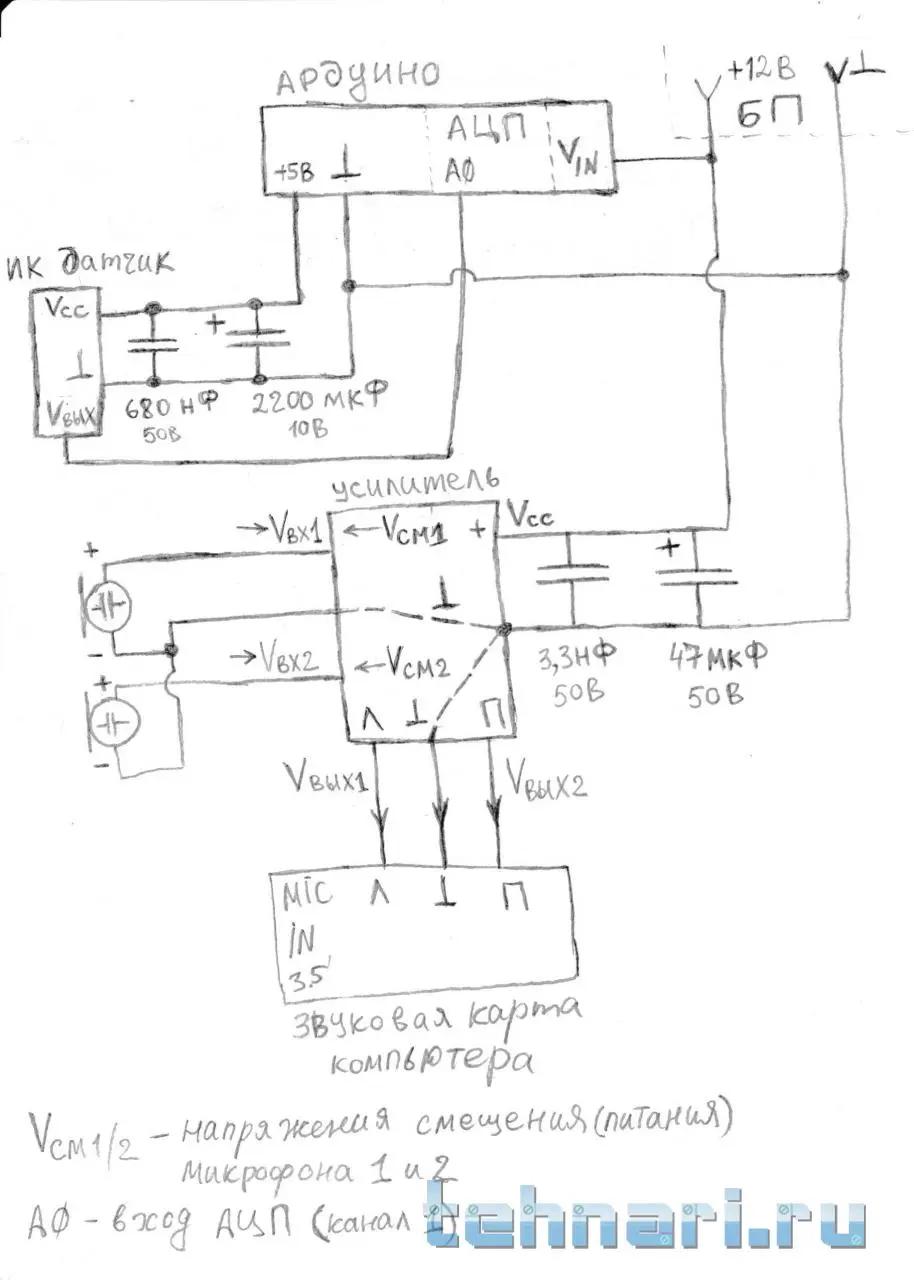 АРДУИНО
+12В
БП
V⊥
+5В ⊥
АЦП
AØ
VIN
ИК датчик
Vcc
⊥
Vвых
680 нФ
50В
+
2200 мкФ
10В
усилитель
→Vвх1
←Vсм1 +
Vcc
+
⊥
→Vвх2
←Vсм2
Л ⊥ П
3,3нФ
50В
47мкФ
50В
+
-
+
-
Vвых1
Vвых2
MiC Л ⊥ П
iN
3.5
Звуковая карта
компьютера
Vсм1/2 – напряжения смещения (питания)
микрофона 1 и 2
AØ – вход АЦП (канал 1)
tehnari.ru